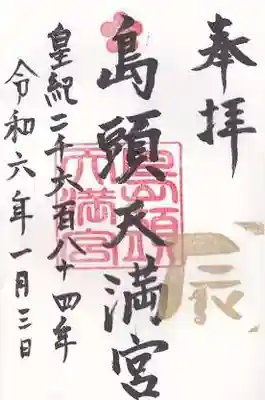 奉拝
辰
島頭天満宮
島頭
天満宮
皇紀二千六百八十四年
令和六年一月三日